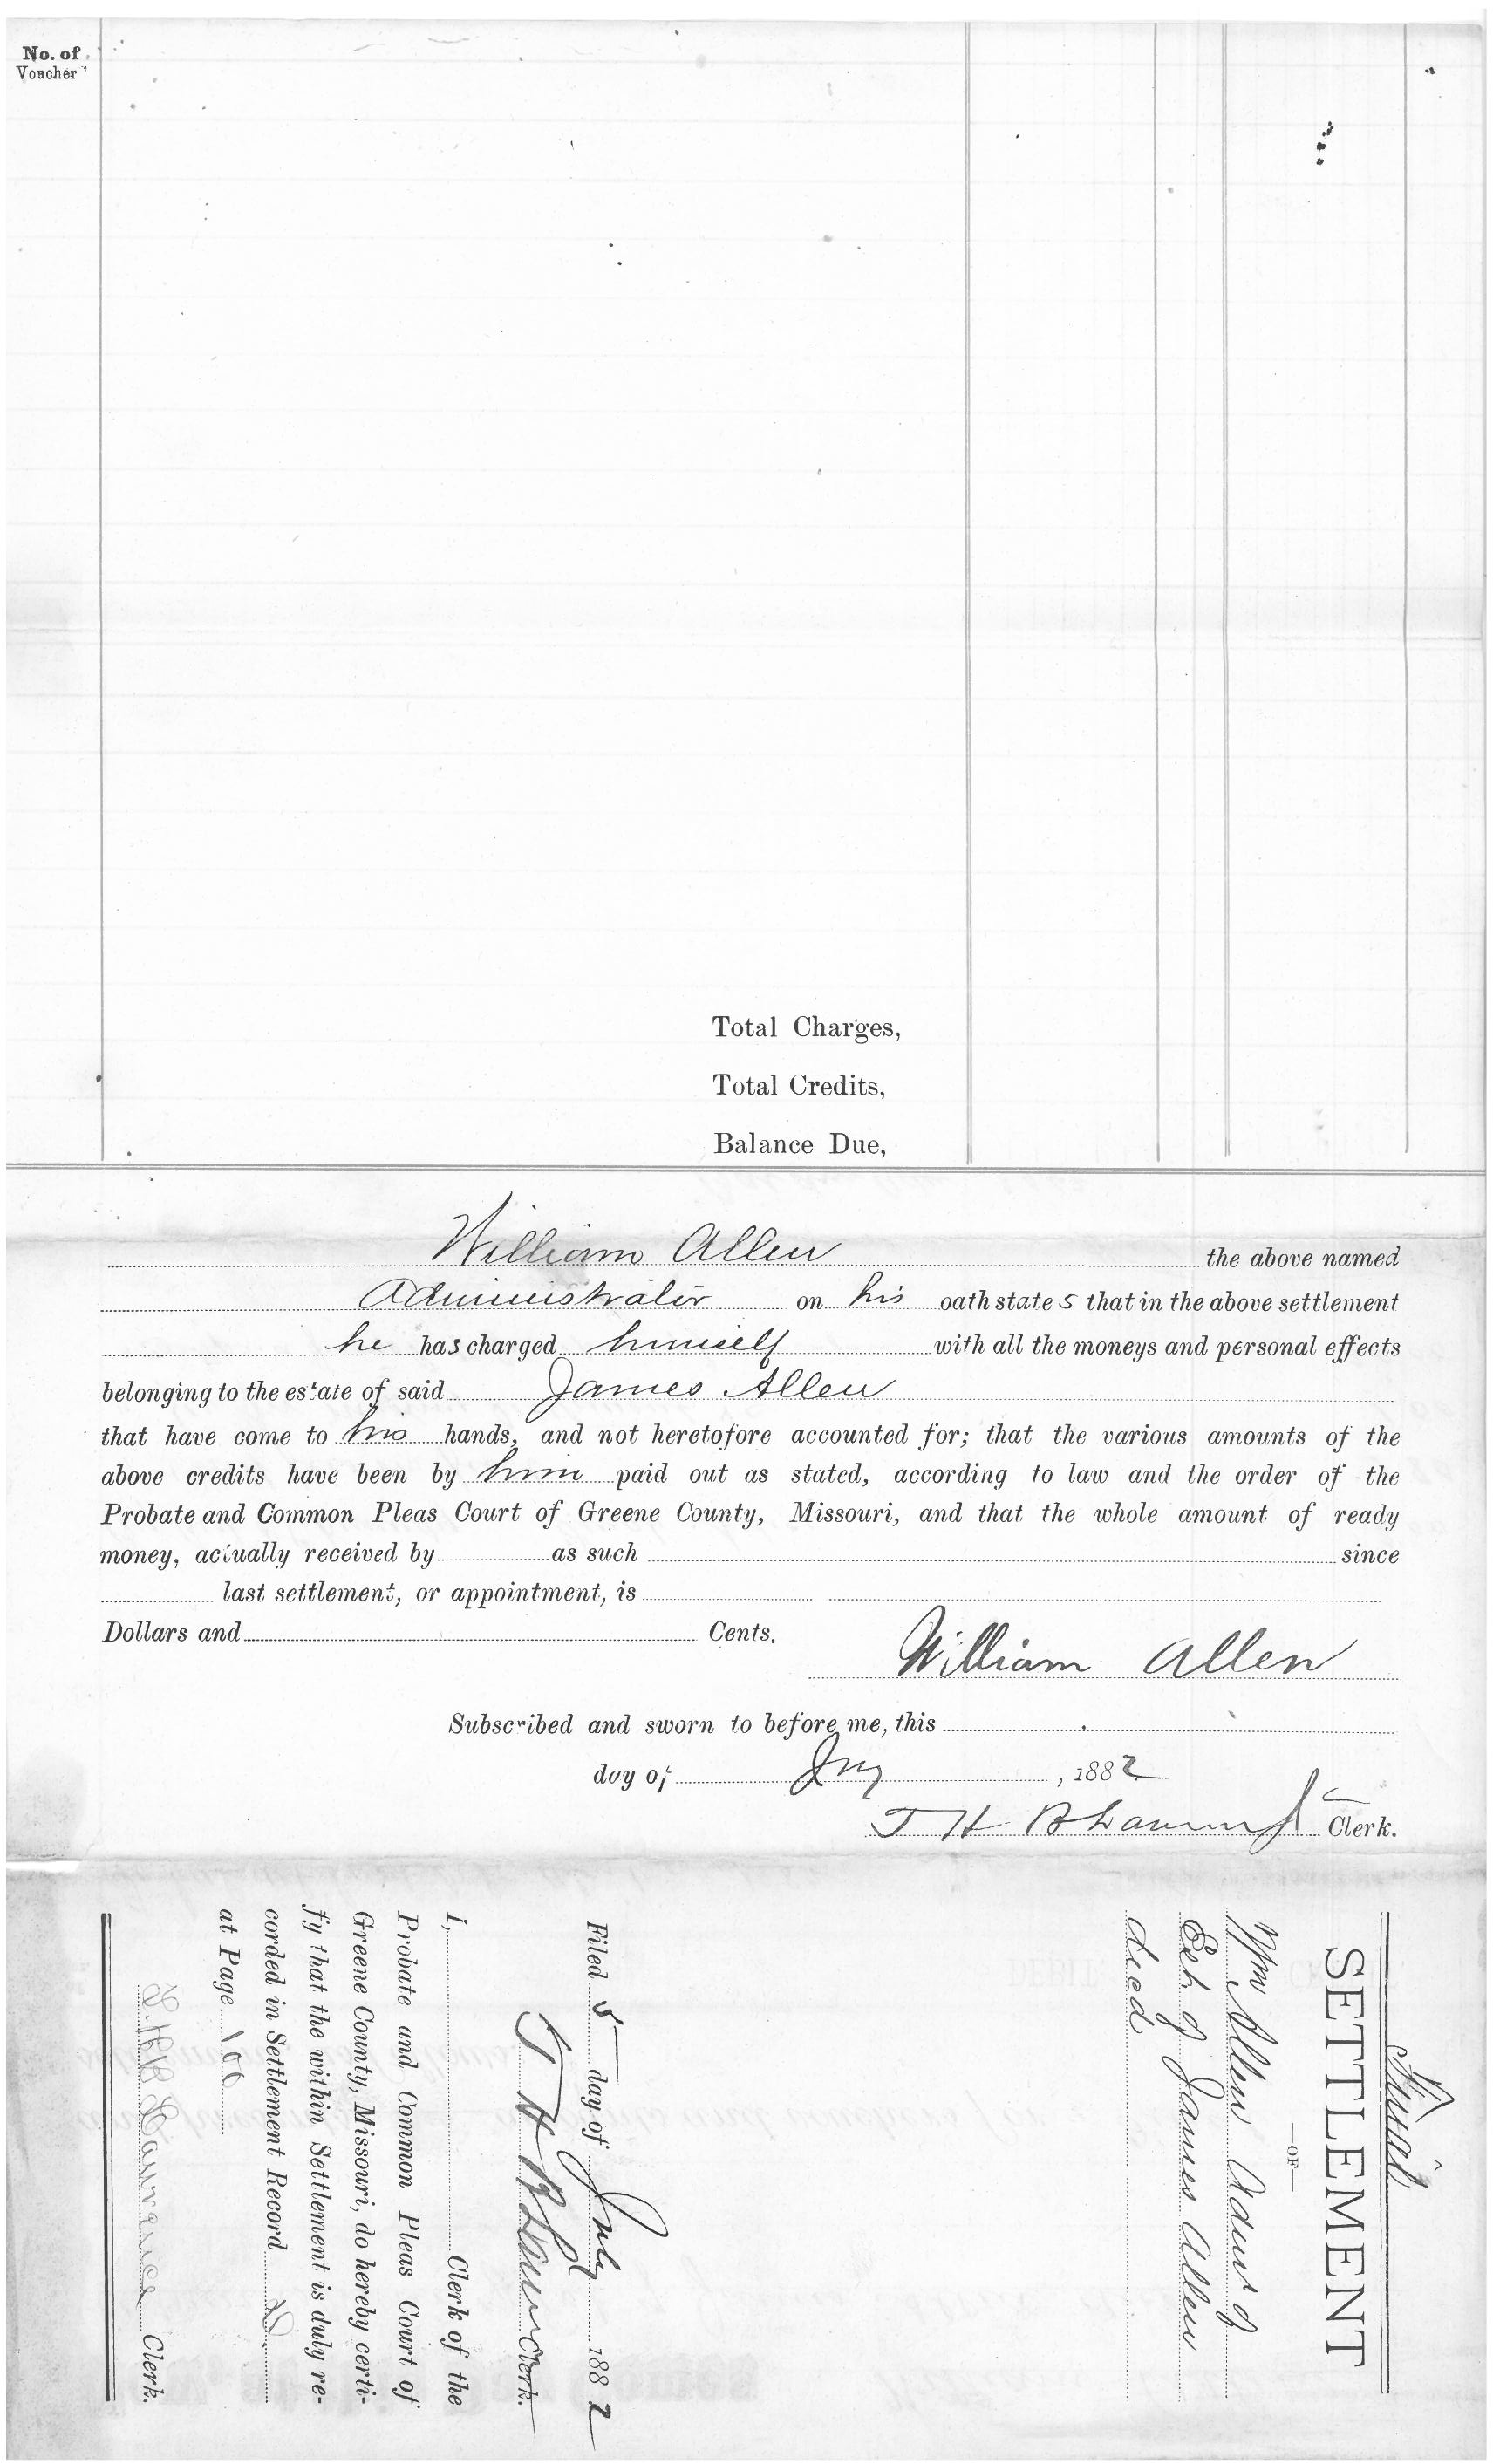 No. of
Voucher
Total Charges,
Total Credits,
Balance Due,
William Allen the above named
Administrator on his oath states that in the above settlement
he has charged himself with all the moneys and personal effects
belonging to the estate of said James Allen
that have come to his hands, and not heretofore accounted for; that the various amounts of the
above credits have been by him paid out as stated, according to law and the order of the
Probate and Common Pleas Court of Greene County, Missouri, and that the whole amount of ready
money, actually received by as such since
last settlement, or appointment, is
Dollars and Cents.
William Allen
Subscribed and sworn to before me, this
day of , 1882
T H B Clerk.
Final
SETTLEMENT
—OF—
Wm Allen Admr of
Est of James Allen
decd
Filed 5 day of July 1882
T H B Clerk.
I, Clerk of the
Probate and Common Pleas Court of
Greene County, Missouri, do hereby certi-
fy that the within Settlement is duly re-
corded in Settlement Record D
at Page 100
T.H.B. Lawrence Clerk.